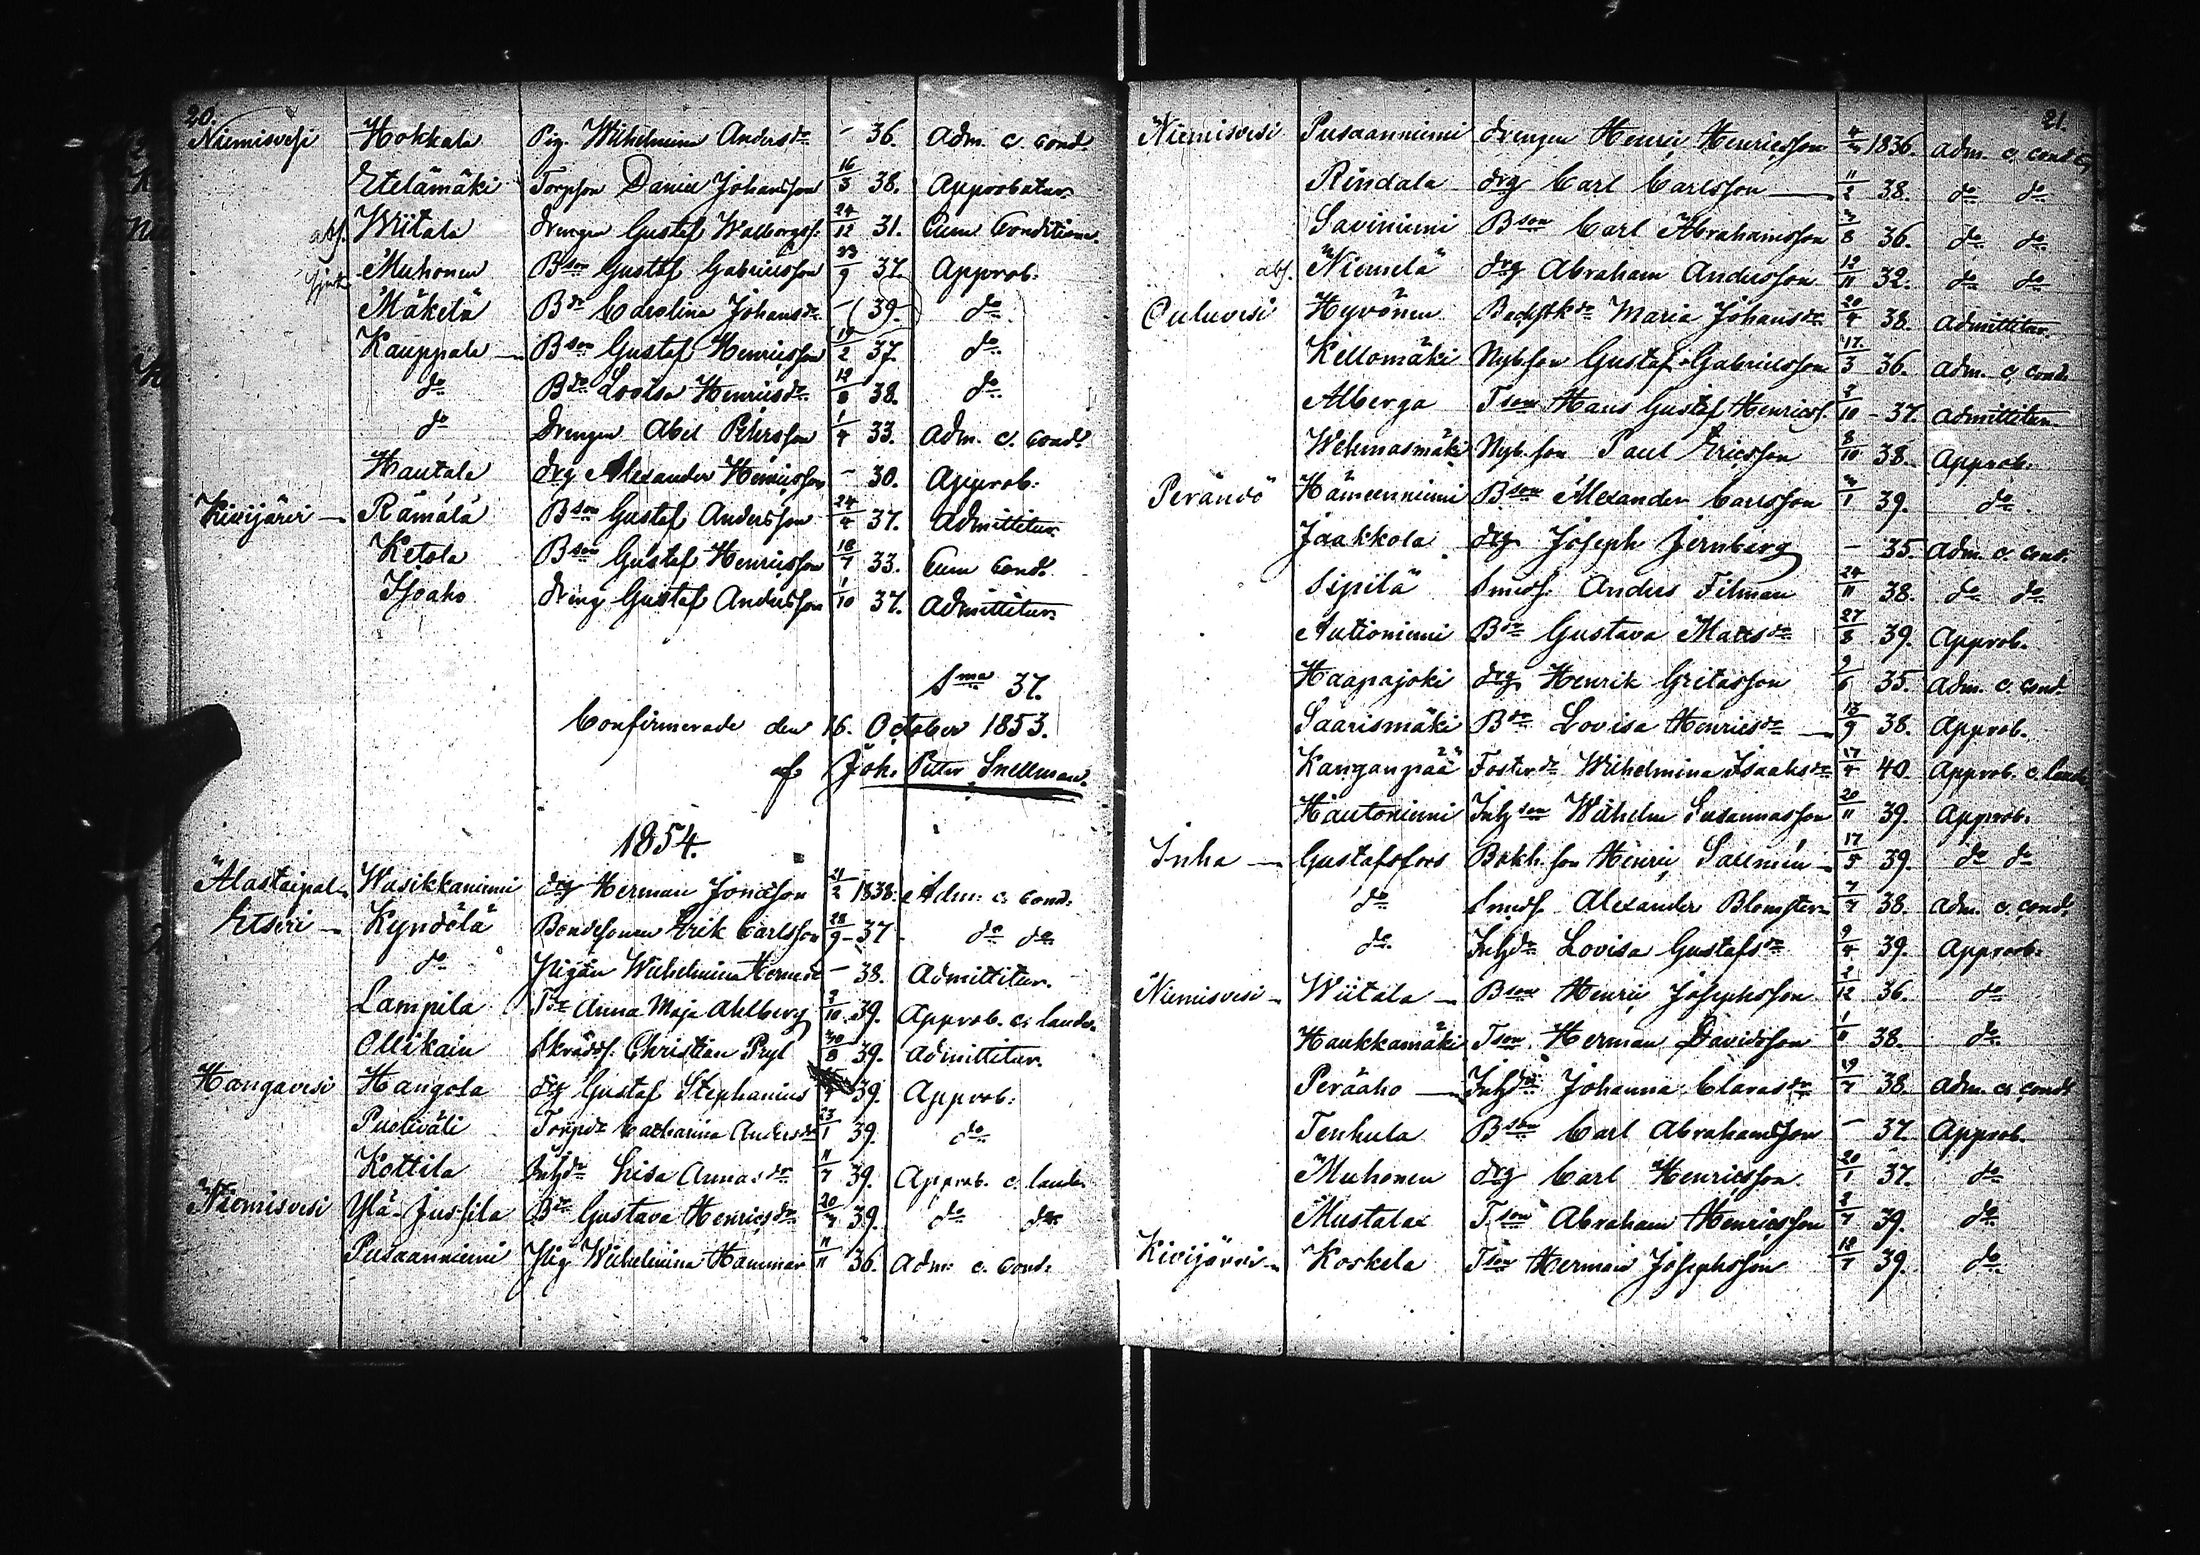 20.
Niemisvesi Hokkala Pig. Wilhelmina Andersdr - 36. Adm. c. cond.
Etelämäki Torpson Daniel Johansson 16/3 38. Approbatur.
abs. Wiitala Drengen Gustaf Walborgss. 24/12 31. Cum Conditione.
Muhonen Bson Gustaf Gabrielsson 23/9 37. Approb.
Mäkelä Bdr Carolina Johansdr - 39. do
Kauppala Bson Gustaf Henricsson 19/2 37. do
do Bdr Lovisa Henricsdr 12/8 38. do
do Drengen Abel Petersson 1/4 33. Adm. c. cond.
Hautala drg Alexander Henricsson - 30. Approb.
Kivijärvi Rämälä Bson Gustaf Andersson 24/4 37. Admittitur.
Ketola Bson Gustaf Henricsson 18/7 33. Cum Cond.
Isoaho dreng Gustaf Andersson 1/10 37. Admittitur.
Sma 37.
Confirmerade den 16. October 1853.
af Joh. Petter Snellman.
1854.
Alastaipal. Wasikkaniemi drg Herman Jonasson 21/2 1838. Adm. c. cond.
Etseri Kyndölä Bondesonen Erik Carlsson 28/9 - 37 - do do
do Pigan Wilhelmina - 38. Admittitur.
Lampila Tdr Anna Maja Ahlberg 3/10 39. Approb. c. laude.
Ollikain Skrädds. Christian Pryl 30/8 39. Admittitur.
Hangavesi Hangola drg Gustaf Stephanius 39. Approb.
Puoliväli Torpdr Catharina Andersdr 23/1 39. do
Kottila Inhdr Lisa Annasdr 11/7 39. Approb. c. laude.
Niemisvesi Ylä-Jussila Bdr Gustava Henricsdr 20/7 39. do do
Pusaanniemi Pig Wilhelmina Hammar 11/11 36. Adm. c. Cond.
21.
Niemisvesi Pusaanniemi drengen Henric Henricsson 1836. adm. c. cond.
Rindala drg Carl Carlsson 11/2 38. do do
Saviniemi Bson Carl Abrahamsson 36. do do
abs. Niemelä drg Abraham Andersson 12/11 32. do do
Ouluvesi Hyvönen Backstkdr Maria Johansdr 20/4 38. Admittitur.
Kellomäki Nybson Gustaf Gabrielsson 17/3 36. Adm. c. cond.
Alberga Tson Hans Gustaf Henricss. 3/10 - 37. Admittitur.
Wehmasmäki Nyb. son Paul Ericsson 8/10 38. Approb.
Perändö Hämeenniemi Bson Alexander Carlsson 39. do
Jaakkola drg Joseph Jernberg - 35. Adm. c. cond.
Sipilä Smeds. Anders Filman 24/11 38. do do
Autioniemi Bdr Gustava Matsdr 27/8 39. Approb.
Haapajoki drg Henrik Gretasson 9/6 35. Adm. c. cond.
Saarismäki Bdr Lovisa Henricsdr 13/9 38. Approb.
Kanganpää Fosterdr Wilhelmina Isaaksdr 17/4 40. Approb. c. laude
Hautoniemi Inhson Wilhelm Susannasson 20/11 39. Approb.
Inha Gustafsfors Bokh. son Henric Sallmén 17/5 39. do do
do Smeds. Alexander Blomster 7/7 38. Adm. c. cond.
do Inhdr Lovisa Gustafsdr 9/4 39. Approb.
Niemisvesi Wiitala Bson Henric Josephsson 2/12 36. do
Haukkamäki Tson Herman Davidsson 38. do
Peräaho Inhdr Johanna Clarasdr 19/7 38. Adm. c. cond.
Tenhula Bson Carl Abrahamsson - 37. Approb.
Muhonen drg Carl Henricsson 20/1 37. do
Mustala Tson Abraham Henricsson 2/7 39. do
Kivijärvi Koskela Tson Herman Josephsson 12/7 39. do